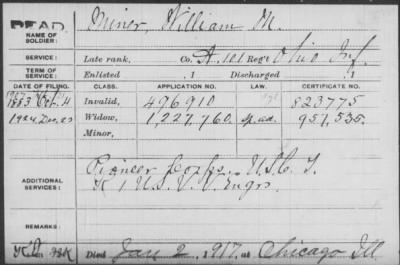 DEAD.
NAME OF SOLDIER: Miner, William M.
SERVICE: Late rank, Co. A, 101 Reg't Ohio Inf.
TERM OF SERVICE: Enlisted , 1 Discharged , 1
DATE OF FILING. CLASS. APPLICATION NO. LAW. CERTIFICATE NO.
1883 Oct. 4 Invalid, 476910 823775
1924 Dec. 23 Widow, 1,227,760. 951,535.
Minor,
ADDITIONAL SERVICES: Pioneer Corps. U.S.C.T.
K 1 U.S.V.V. Engrs.
REMARKS:
Died Jan 2, 1917, at Chicago Ill